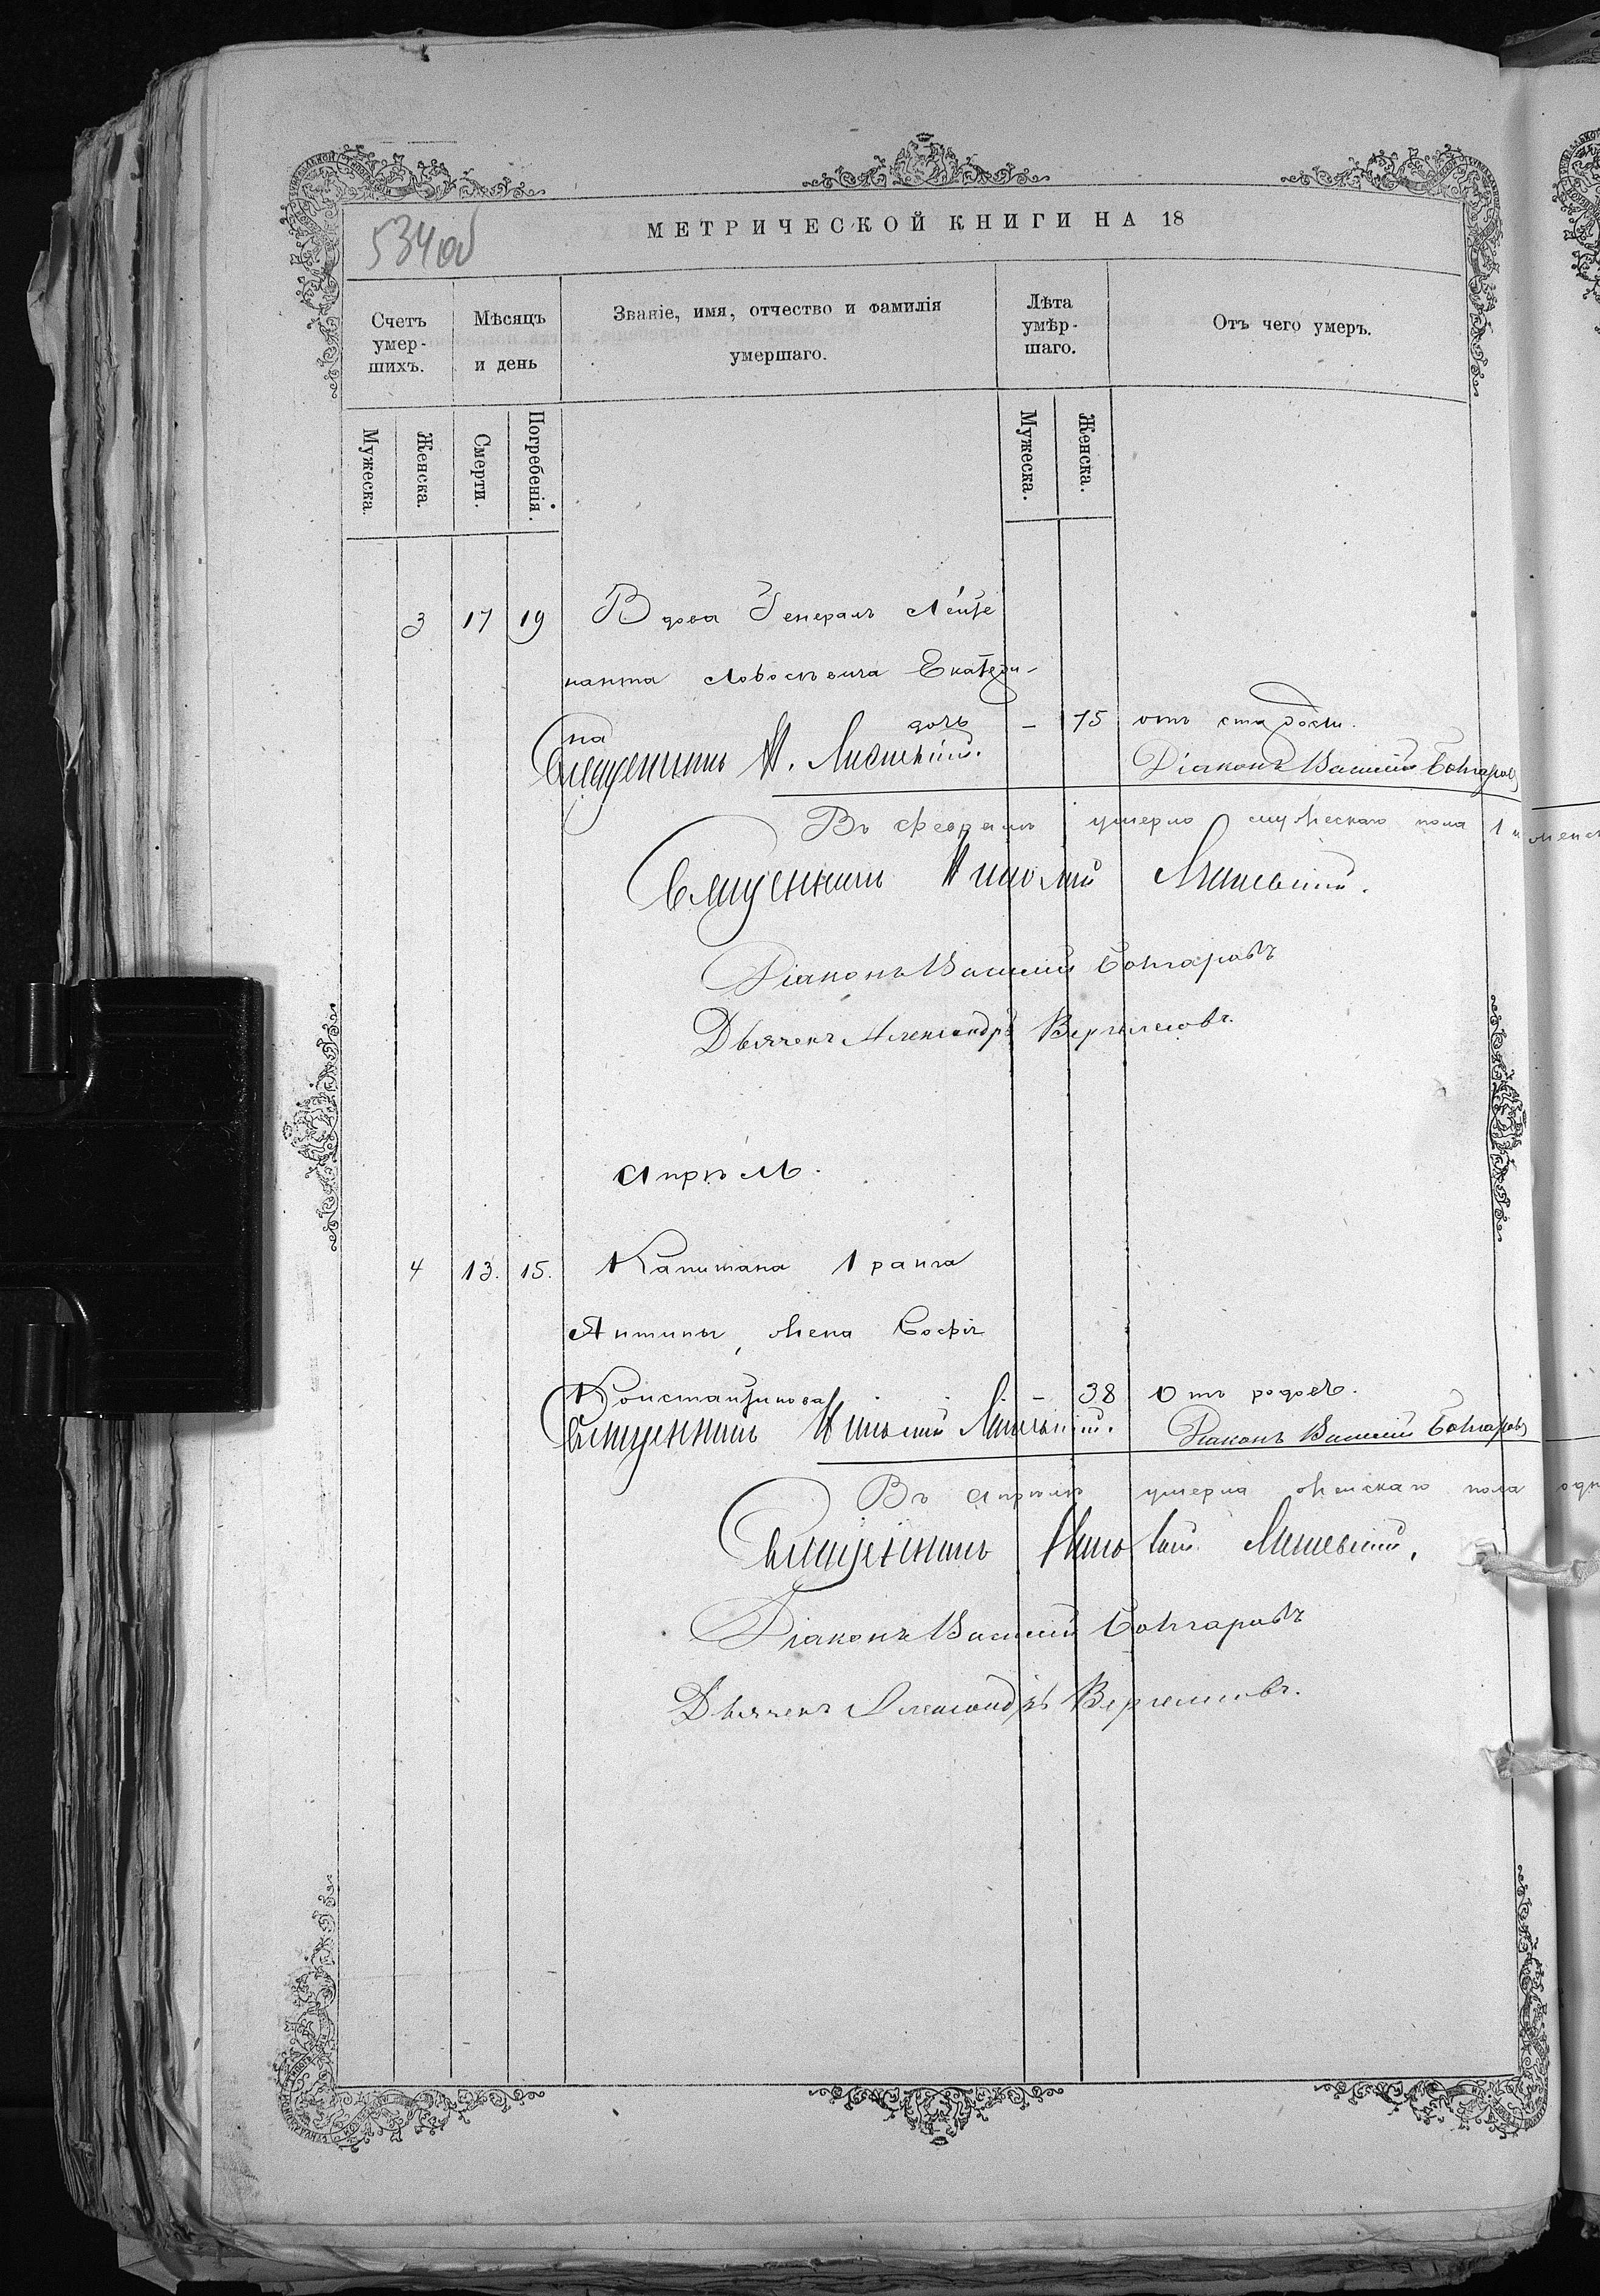 534об
МЕТРИЧЕСКОЙ КНИГИ НА 18
Счетъ умер- шихъ.
Мѣсяцъ и день
Званіе, имя, отчество и фамилія умершаго.
Лѣта умѣр- шаго.
Отъ чего умеръ.
Мужеска.
Женска.
Смерти.
Погребенія.
Мужеска.
Женска.
3 17 19 Вдова Генералъ Лейте
нанта Екатери-
на дочь - 75 отъ старости.
Священникъ Н.
Діаконъ Василій Бонгаровъ
Въ Февралѣ умерло мужескаго пола 1 и женск
Священникъ Николай
Діаконъ Василій Бонгаровъ
Дьячекъ Александръ
Апрѣль.
4 13. 15. Капитана 1 ранга
жена Софія
Константинова - 38 Отъ родовъ.
Священникъ Николай
Діаконъ Василій Бонгаровъ
Въ Апрѣлѣ умерла женскаго пола одн
Священникъ Николай
Діаконъ Василій Бонгаровъ
Дьячекъ Александръ